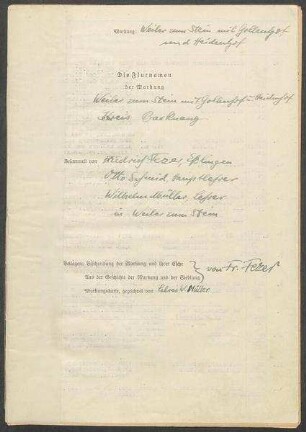 Markung: Weiler zum Stein mit Gollenhof
und Heidenhof
Die Flurnamen
der Markung
Weiler zum Stein mit Gollenhof u. Heidenhof
Kreis Backnang
Gesammelt von Friedrich Fezer, Eßlingen
Otto Schmid Hauptlehrer
Wilhelm Müller, Lehrer
in Weiler zum Stein
Beilagen: Beschreibung der Markung und ihrer Teile
Aus der Geschichte der Markung und der Siedlung
von Fr. Fezer
Markungskarte, gezeichnet von Lehrer W. Müller